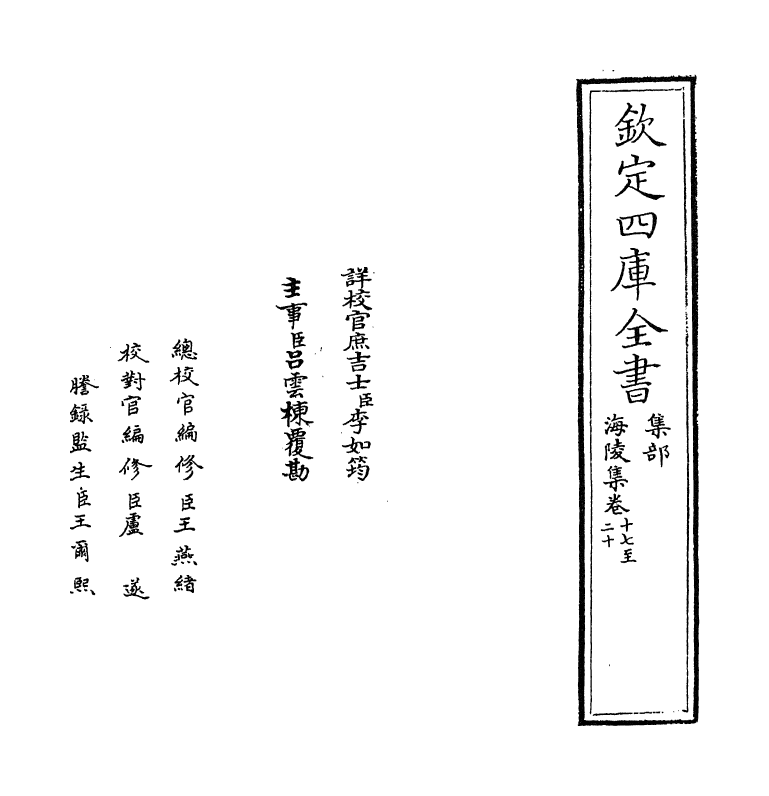 欽定四庫全書
集部
海陵集卷十七至二十
詳校官庶吉士臣李如筠
主事臣呂雲棟覆勘
總校官編修臣王燕緒
校對官編修臣盧遂
謄錄監生臣王爾熙